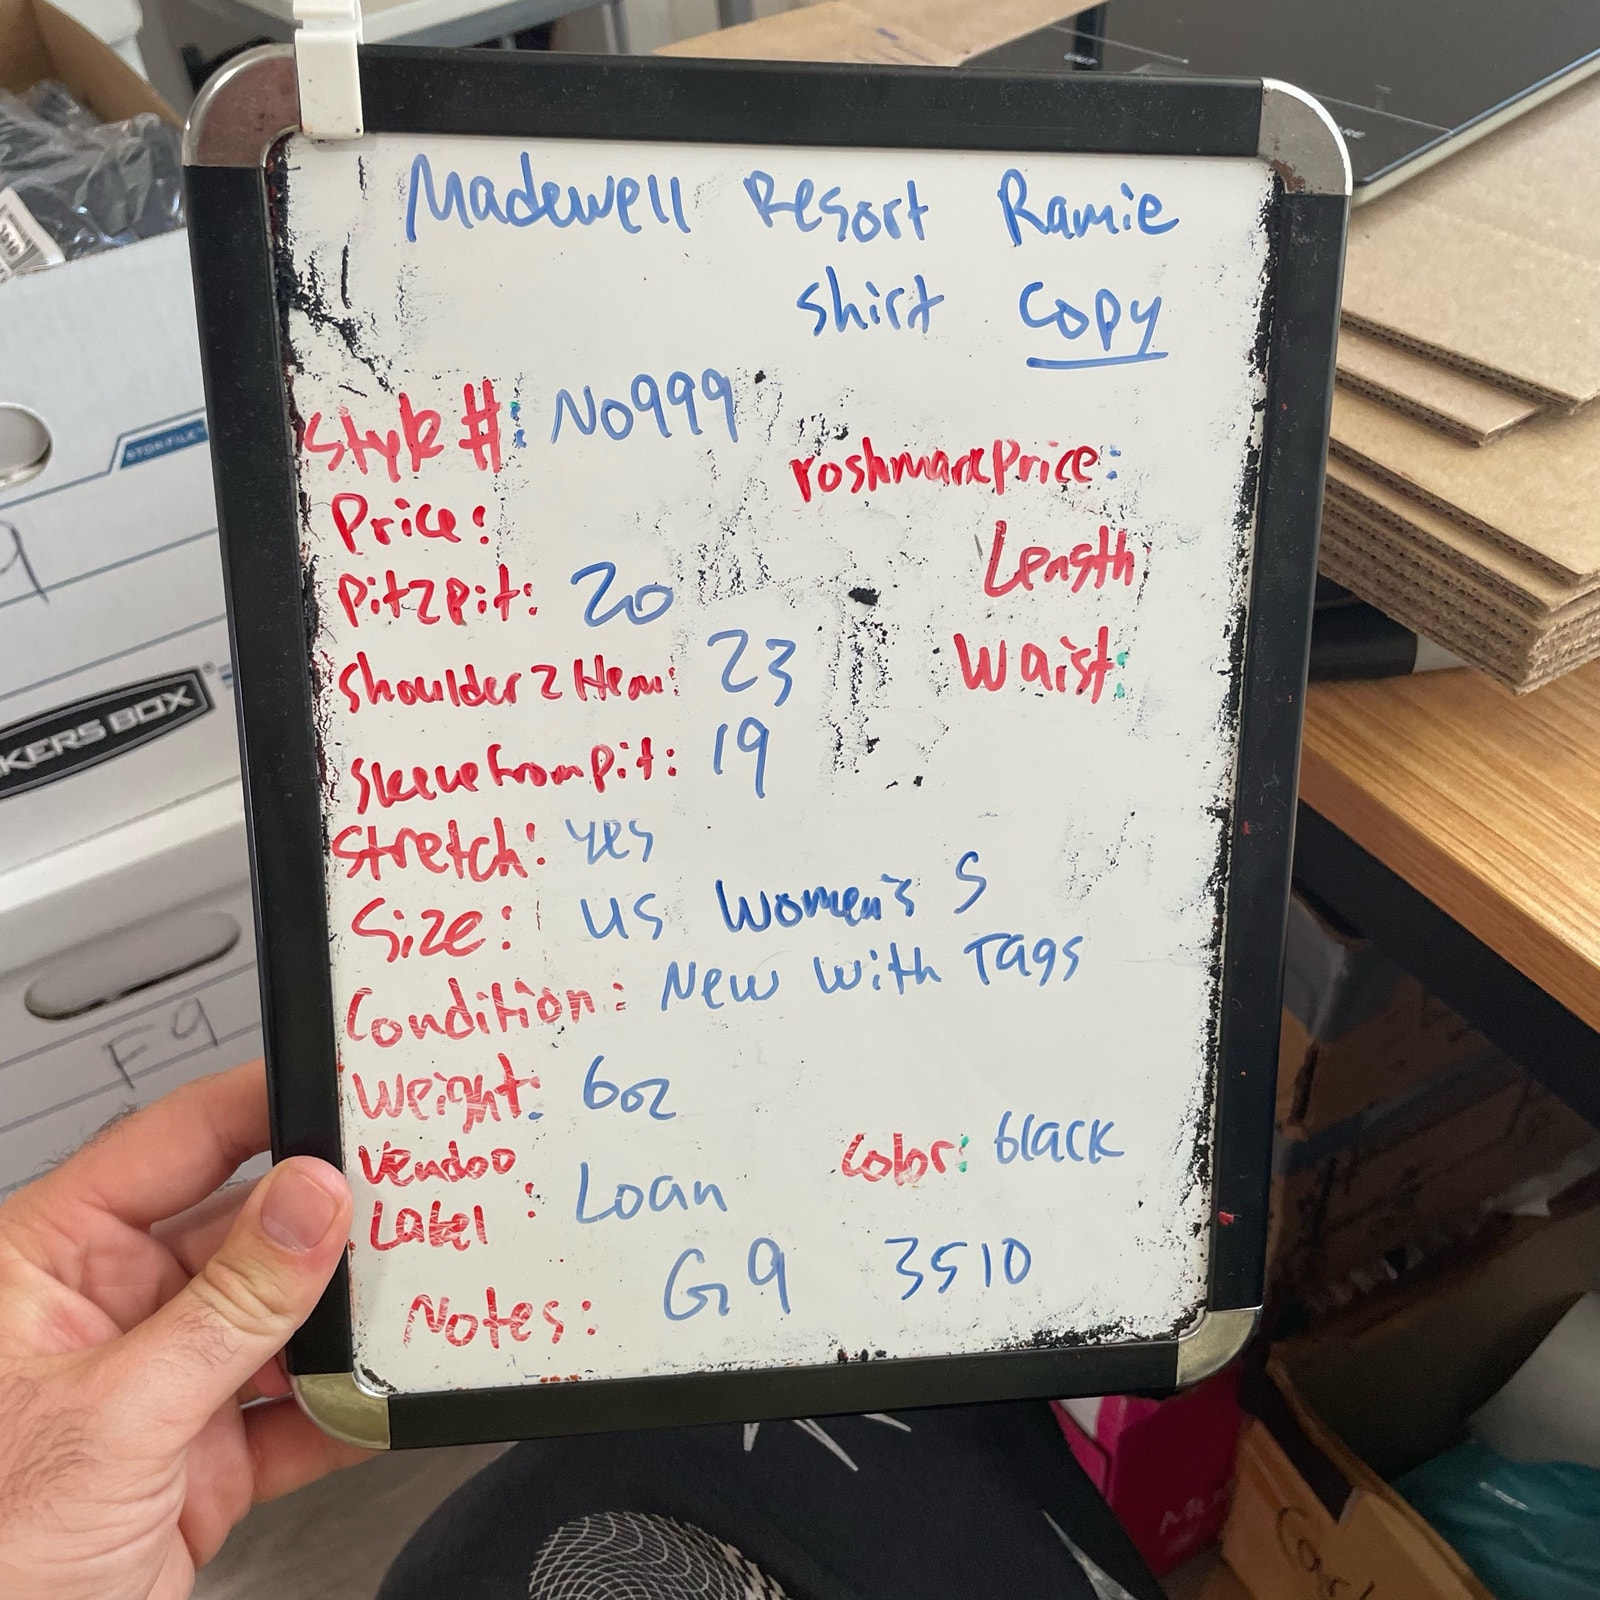 Madewell Resort Ramie
shirt copy
Style #: NO999
Poshmark Price:
Price:
Length
Pit2Pit: 20
Waist:
Shoulder2Hem: 23
Sleeve from pit: 19
Stretch: yes
Size: US Women's S
Condition: New With Tags
Weight: 6oz
Vendoo
Label: Loan
Color: black
Notes: G9 3510
STOR/FILE
KERS BOX
F9